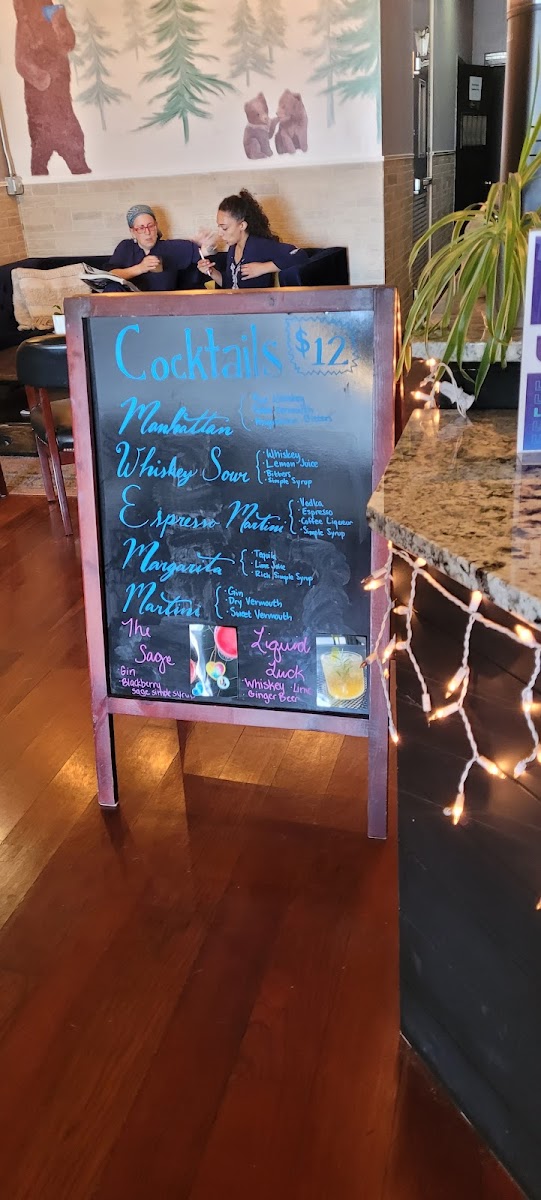 Cocktails $12
Manhattan
Whiskey Sour
· Whiskey
· Lemon Juice
· Bitters
· Simple Syrup
Espresso Martini
· Vodka
· Espresso
· Coffee Liqueur
· Simple Syrup
Margarita
· Tequila
· Lime Juice
· Rich Simple Syrup
Martini
· Gin
· Dry Vermouth
· Sweet Vermouth
The Sage
· Gin
· Blackberry
sage simple syrup
Liquid Luck
Whiskey · Lime
· Ginger Beer